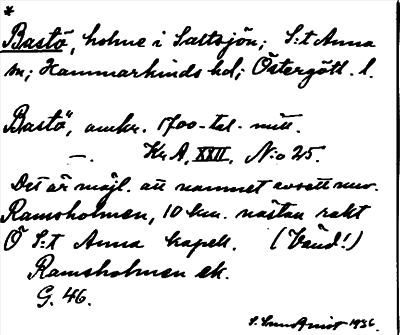 *
Bastö, holme i Saltsjön; S:t Anna
sn; Hammarkinds hd; Östergötl. l.
"Bastö", omkr. 1700-tal. mitt.
—. Kr. A, XXII, N:o 25.
Det är möjl. att namnet avsett nuv.
Ramsholmen, 10 km. nästan rakt
Ö S:t Anna kapell. (Vänd!)
Ramsholmen ek.
G. 46.
1936.